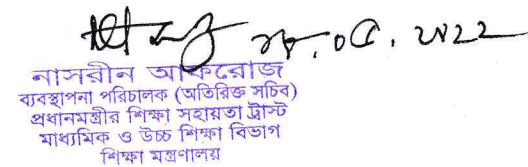 ২৮.০৫.২০২২
নাসরীন আফরোজ
ব্যবস্থাপনা পরিচালক (অতিরিক্ত সচিব)
প্রধানমন্ত্রীর শিক্ষা সহায়তা ট্রাস্ট
মাধ্যমিক ও উচ্চ শিক্ষা বিভাগ
শিক্ষা মন্ত্রণালয়